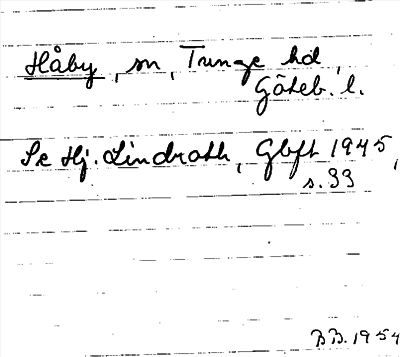 Håby, sn, Tunge hd,
Göteb. l.
Se Hj. Lindroth, Gbft 1945,
s. 33
BB. 1954